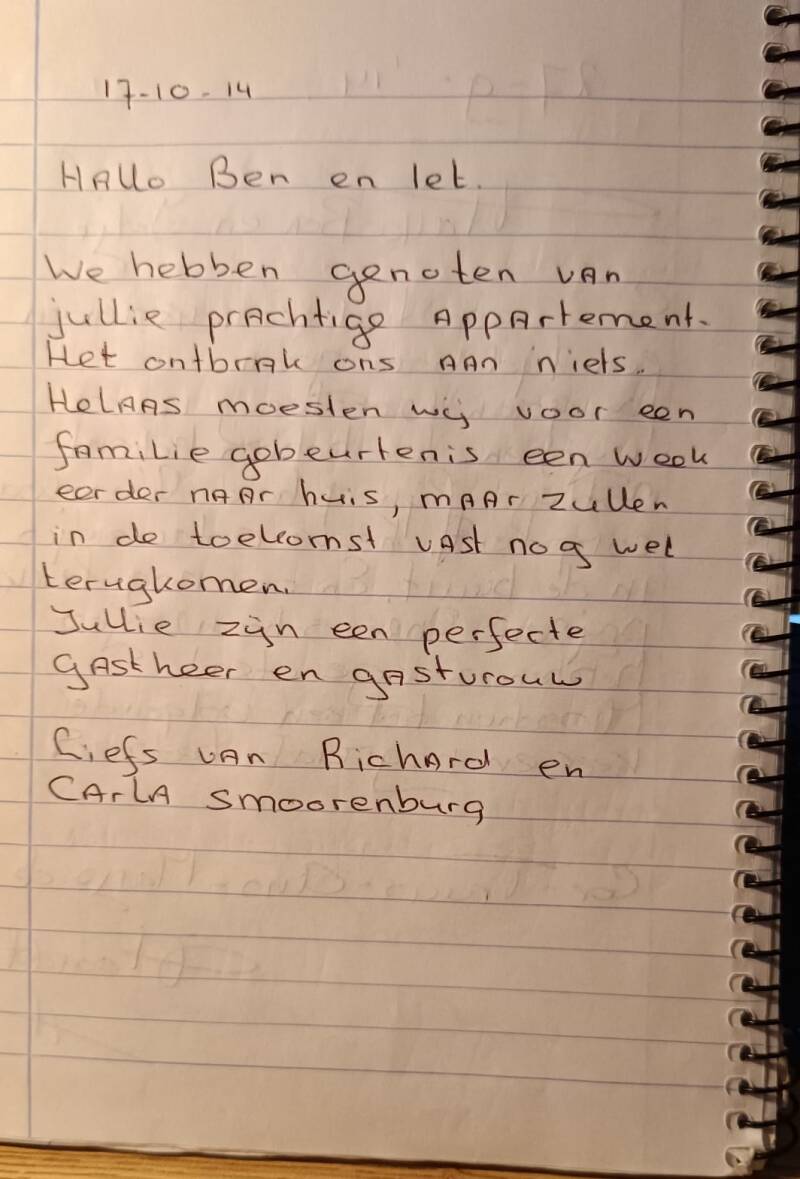 17-10-14
Hallo Ben en let.
We hebben genoten van
jullie prachtige appartement.
Het ontbrak ons aan niets.
Helaas moesten wij voor een
familie gebeurtenis een week
eerder naar huis, maar zullen
in de toekomst vast nog wel
terugkomen.
Jullie zijn een perfecte
gastheer en gastvrouw
Liefs van Richard en
Carla Smoorenburg